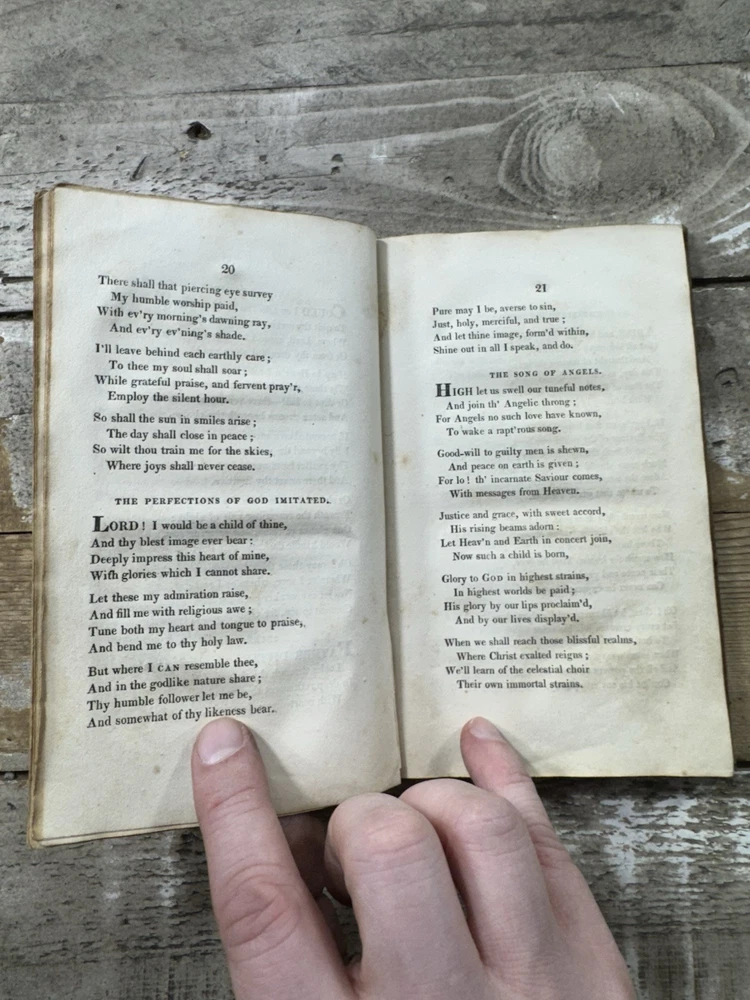 20
There shall that piercing eye survey
My humble worship paid,
With ev'ry morning's dawning ray,
And ev'ry ev'ning's shade.
I'll leave behind each earthly care;
To thee my soul shall soar;
While grateful praise, and fervent pray'r,
Employ the silent hour.
So shall the sun in smiles arise;
The day shall close in peace;
So wilt thou train me for the skies,
Where joys shall never cease.
THE PERFECTIONS OF GOD IMITATED.
LORD! I would be a child of thine,
And thy blest image ever bear:
Deeply impress this heart of mine,
With glories which I cannot share.
Let these my admiration raise,
And fill me with religious awe;
Tune both my heart and tongue to praise,
And bend me to thy holy law.
But where I CAN resemble thee,
And in the godlike nature share;
Thy humble follower let me be,
And somewhat of thy likeness bear.
21
Pure may I be, averse to sin,
Just, holy, merciful, and true;
And let thine image, form'd within,
Shine out in all I speak, and do.
THE SONG OF ANGELS.
HIGH let us swell our tuneful notes,
And join th' Angelic throng;
For Angels no such love have known,
To wake a rapt'rous song.
Good-will to guilty men is shewn,
And peace on earth is given;
For lo! th' incarnate Saviour comes,
With messages from Heaven.
Justice and grace, with sweet accord,
His rising beams adorn:
Let Heav'n and Earth in concert join,
Now such a child is born,
Glory to GOD in highest strains,
In highest worlds be paid;
His glory by our lips proclaim'd,
And by our lives display'd.
When we shall reach those blissful realms,
Where Christ exalted reigns;
We'll learn of the celestial choir
Their own immortal strains.